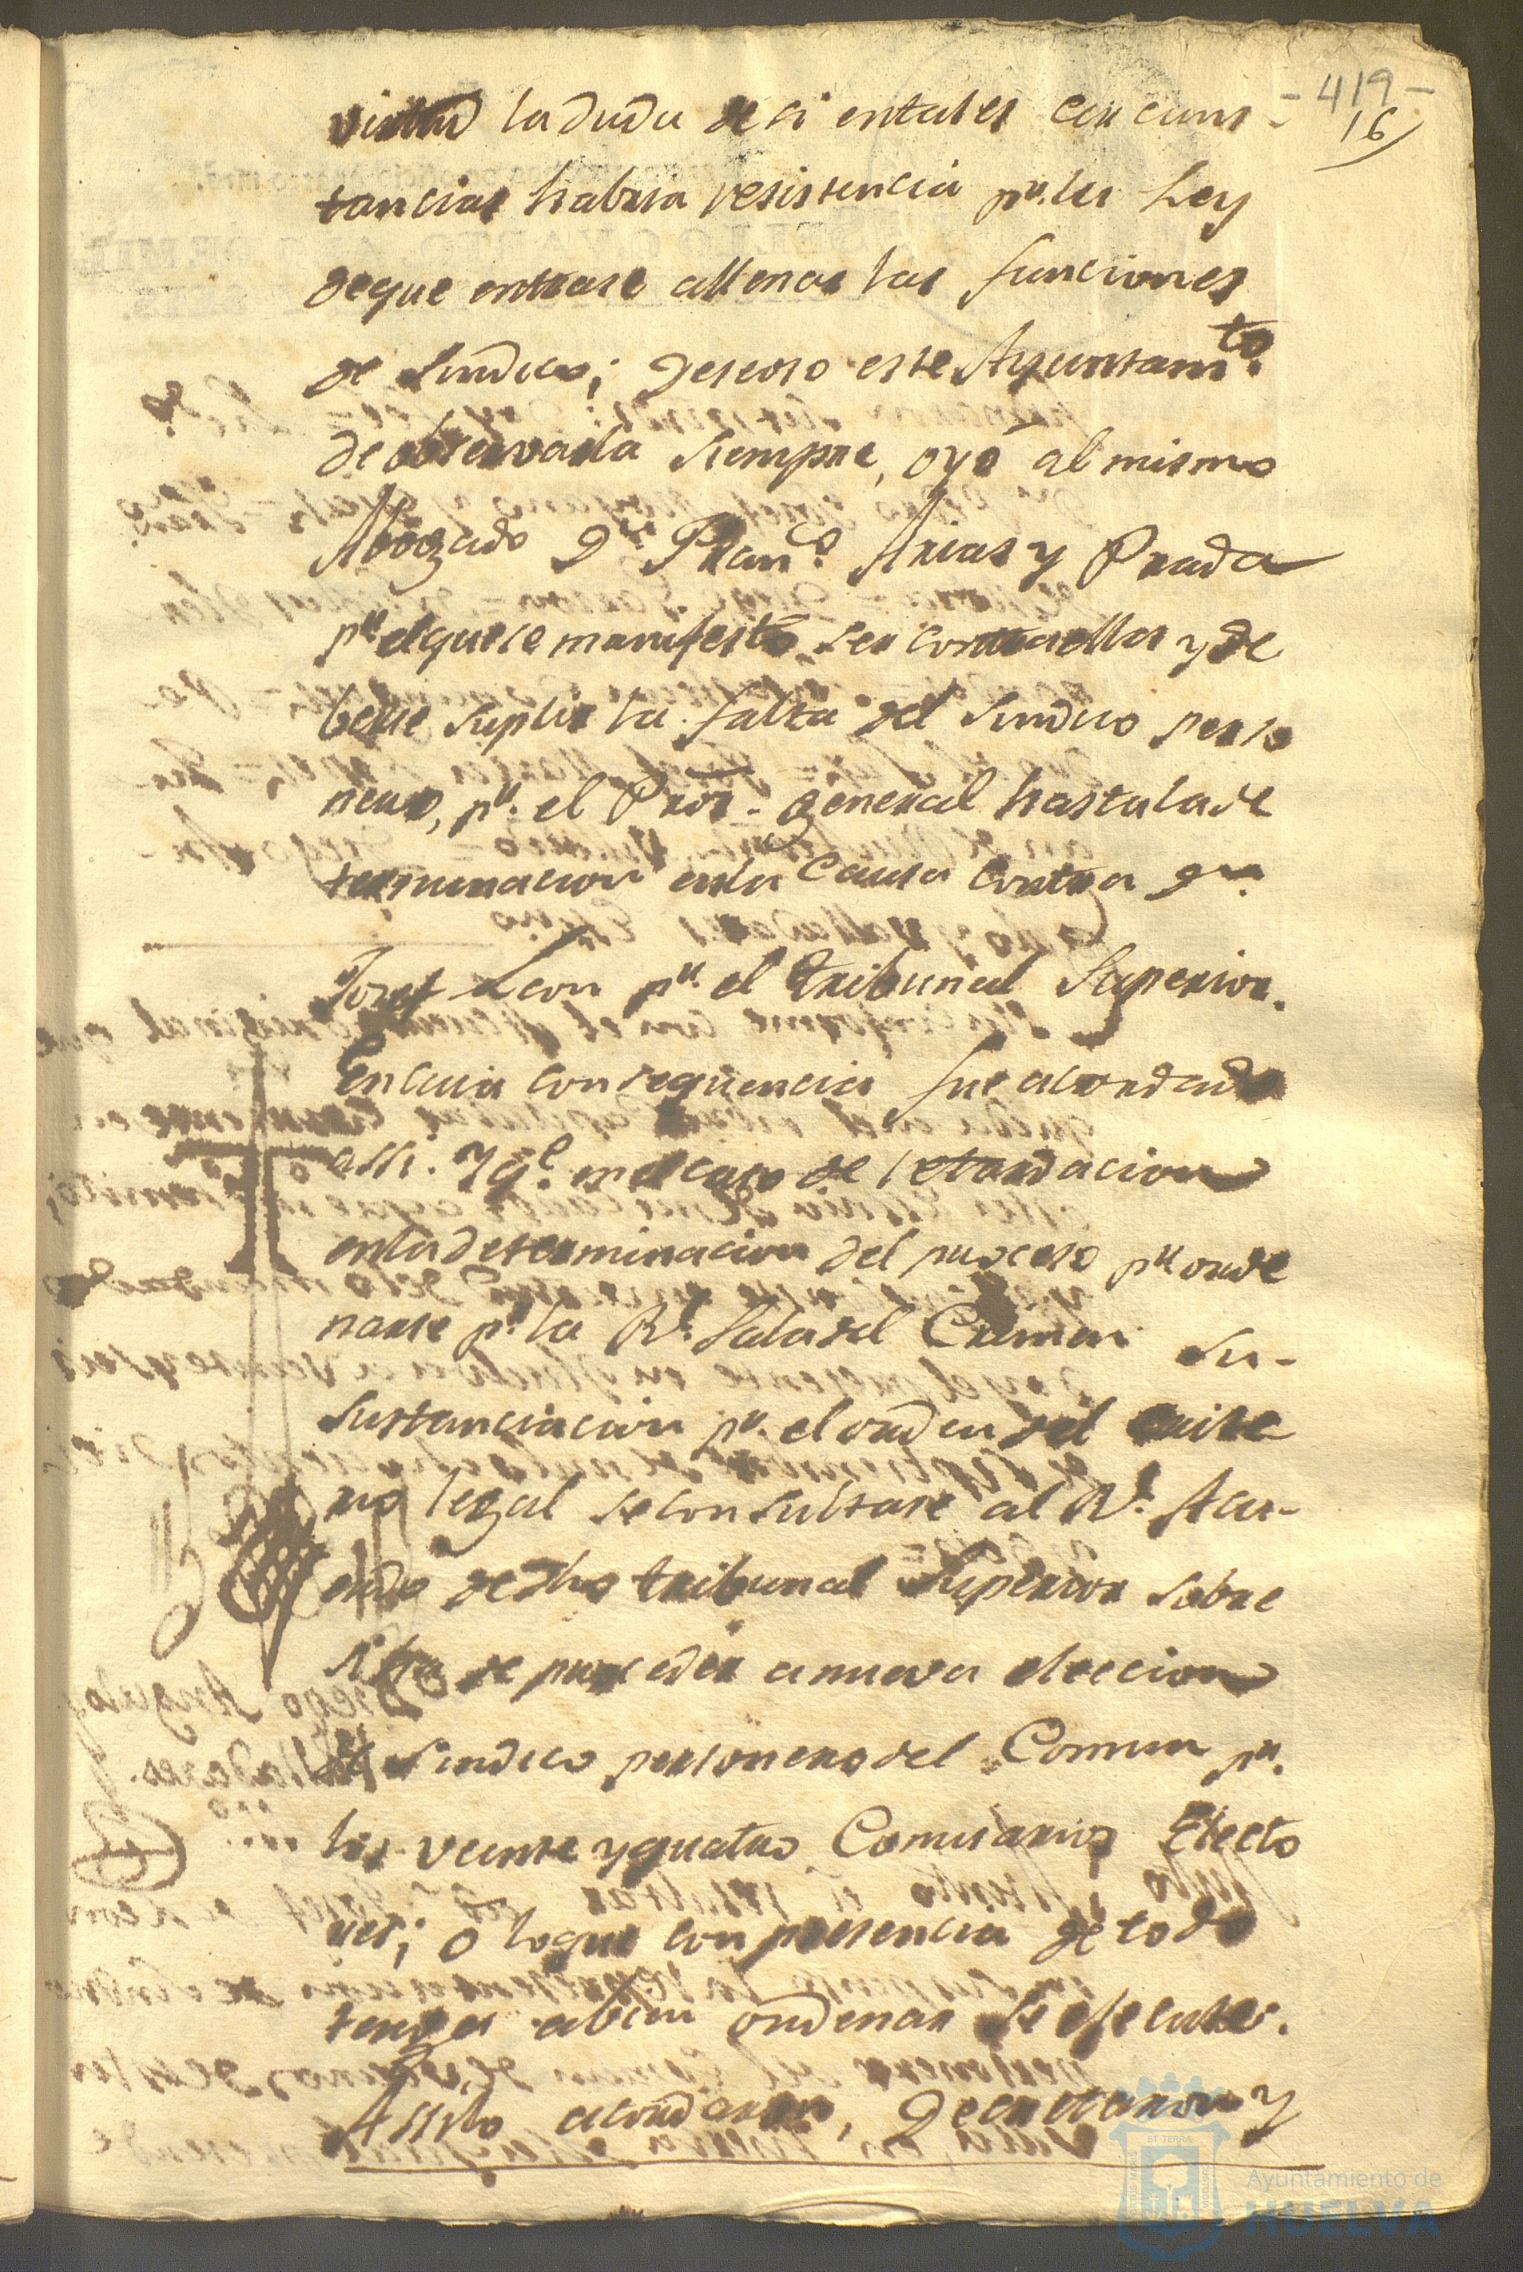 -419-
16
virtud la duda de si entales circuns-
tancias habria resistencia pr. la Ley
deque entrase allenar las funciones
de Sindico; deseoso este Ayuntamto.
de observarla siempre, oyó al mismo
Abogado Dn. Franco. Arias y Prada
pr. elquese manifestó ser contra ellas y de
berse suplir la falta del Sindico perso
nero, pr. el Pror. general hasta la de
terminacion enla Causa contra Dn.
Josef Leon pr. el tribunal Superior.
En cuia consequencia fue acordado
assi. Y qe. en el caso de retardacion
enla determinacion del proceso pr. orde
narse pr. la Rl. Sala del Crimen su-
sustanciacion pr. el orden del
no legal se consultase al Rl. Acu-
erdo de dho tribunal Superior sobre
si ha de proceder a nueva eleccion
de Sindico personero del Comun pr.
los veinte yquatro Comisarios Electo
res; o loque con presencia de todo
tenga abien ordenar se efecute.
Assi lo acordaron, Decretaron y
ET TERRA
Ayuntamiento de
HUELVA